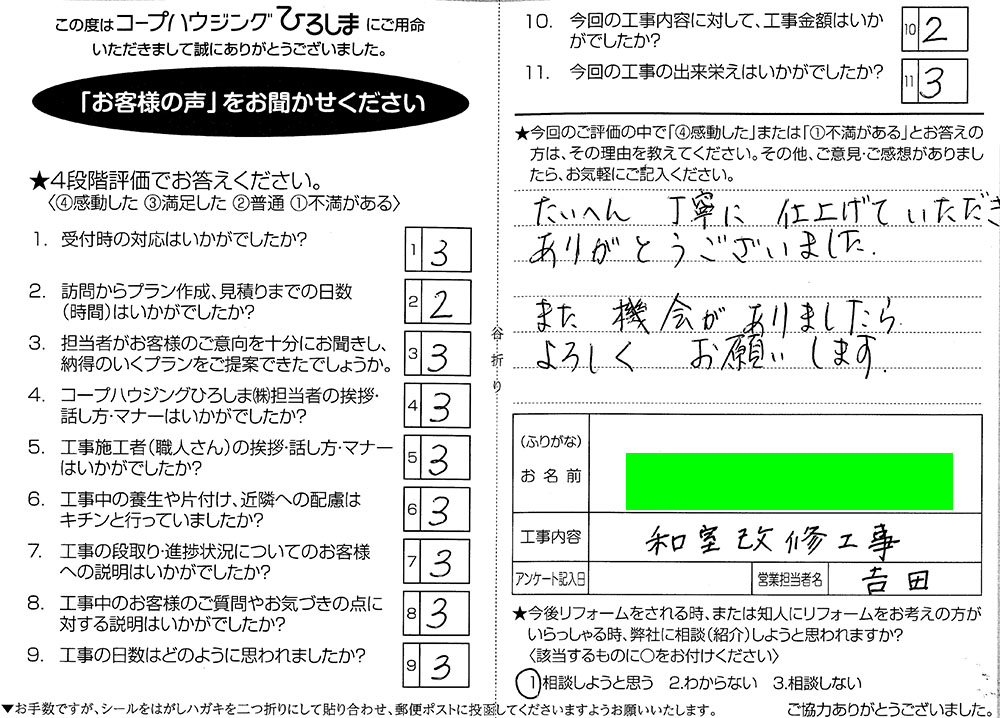 この度はコープハウジングひろしまにご用命
いただきまして誠にありがとうございました。
「お客様の声」をお聞かせください
★4段階評価でお答えください。
〈④感動した ③満足した ②普通 ①不満がある〉
1. 受付時の対応はいかがでしたか?
1 3
2. 訪問からプラン作成、見積りまでの日数
(時間)はいかがでしたか?
2 2
3. 担当者がお客様のご意向を十分にお聞きし、
納得のいくプランをご提案できたでしょうか。
3 3
4. コープハウジングひろしま㈱担当者の挨拶・
話し方・マナーはいかがでしたか?
4 3
5. 工事施工者(職人さん)の挨拶・話し方・マナー
はいかがでしたか?
5 3
6. 工事中の養生や片付け、近隣への配慮は
キチンと行っていましたか?
6 3
7. 工事の段取り・進捗状況についてのお客様
への説明はいかがでしたか?
7 3
8. 工事中のお客様のご質問やお気づきの点に
対する説明はいかがでしたか?
8 3
9. 工事の日数はどのように思われましたか?
9 3
谷折り
10. 今回の工事内容に対して、工事金額はいか
がでしたか?
10 2
11. 今回の工事の出来栄えはいかがでしたか?
11 3
★今回のご評価の中で「④感動した」または「①不満がある」とお答えの
方は、その理由を教えてください。その他、ご意見・ご感想がありまし
たら、お気軽にご記入ください。
たいへん 丁寧に 仕上げて いただき
ありがとうございました.
また 機会が ありましたら
よろしく お願い します.
(ふりがな)
お名前
工事内容 和室改修工事
アンケート記入日 営業担当者名 吉田
★今後リフォームをされる時、または知人にリフォームをお考えの方が
いらっしゃる時、弊社に相談(紹介)しようと思われますか?
〈該当するものに○をお付けください〉
1.相談しようと思う 2.わからない 3.相談しない
▼お手数ですが、シールをはがしハガキを二つ折りにして貼り合わせ、郵便ポストに投函してくださいますようお願いいたします。
ご協力ありがとうございました。